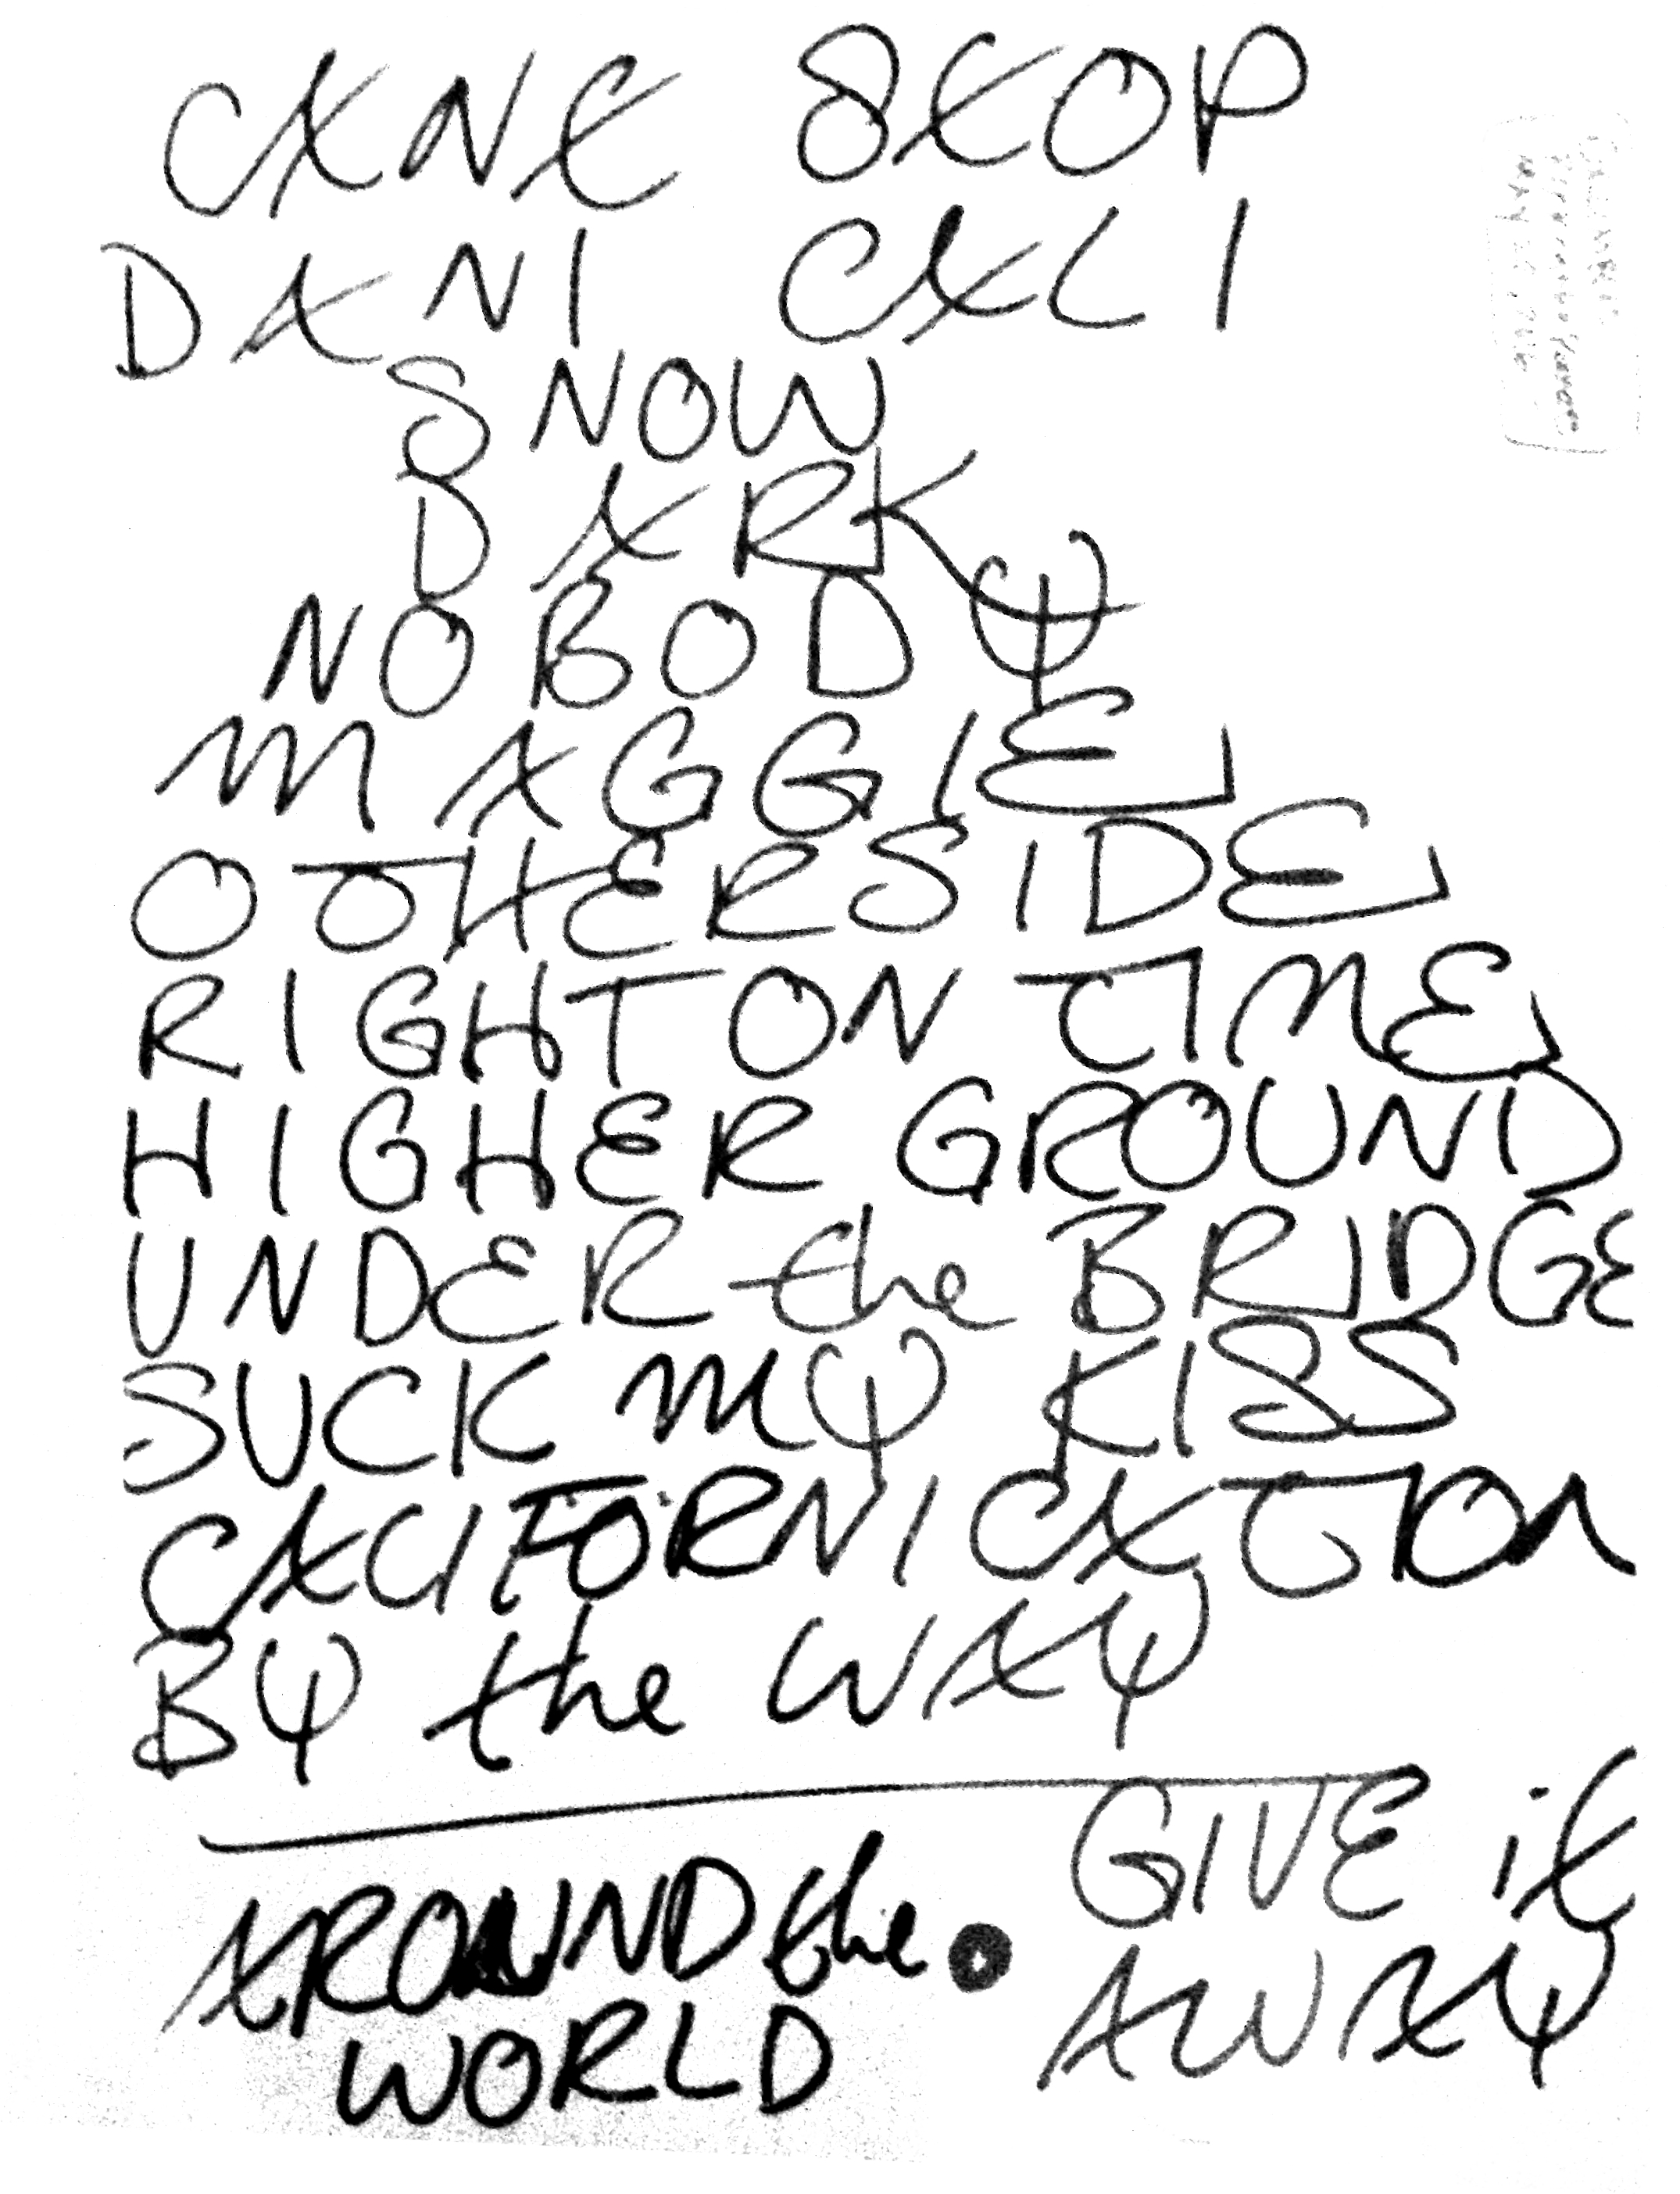 CAN'T STOP
DANI CALI
SNOW
DARK
NOBODY
MAGGIE
OTHERSIDE
RIGHT ON TIME
HIGHER GROUND
UNDER the BRIDGE
SUCK MY KISS
CALIFORNICATION
BY the WAY
AROUND the
WORLD
GIVE it
AWAY